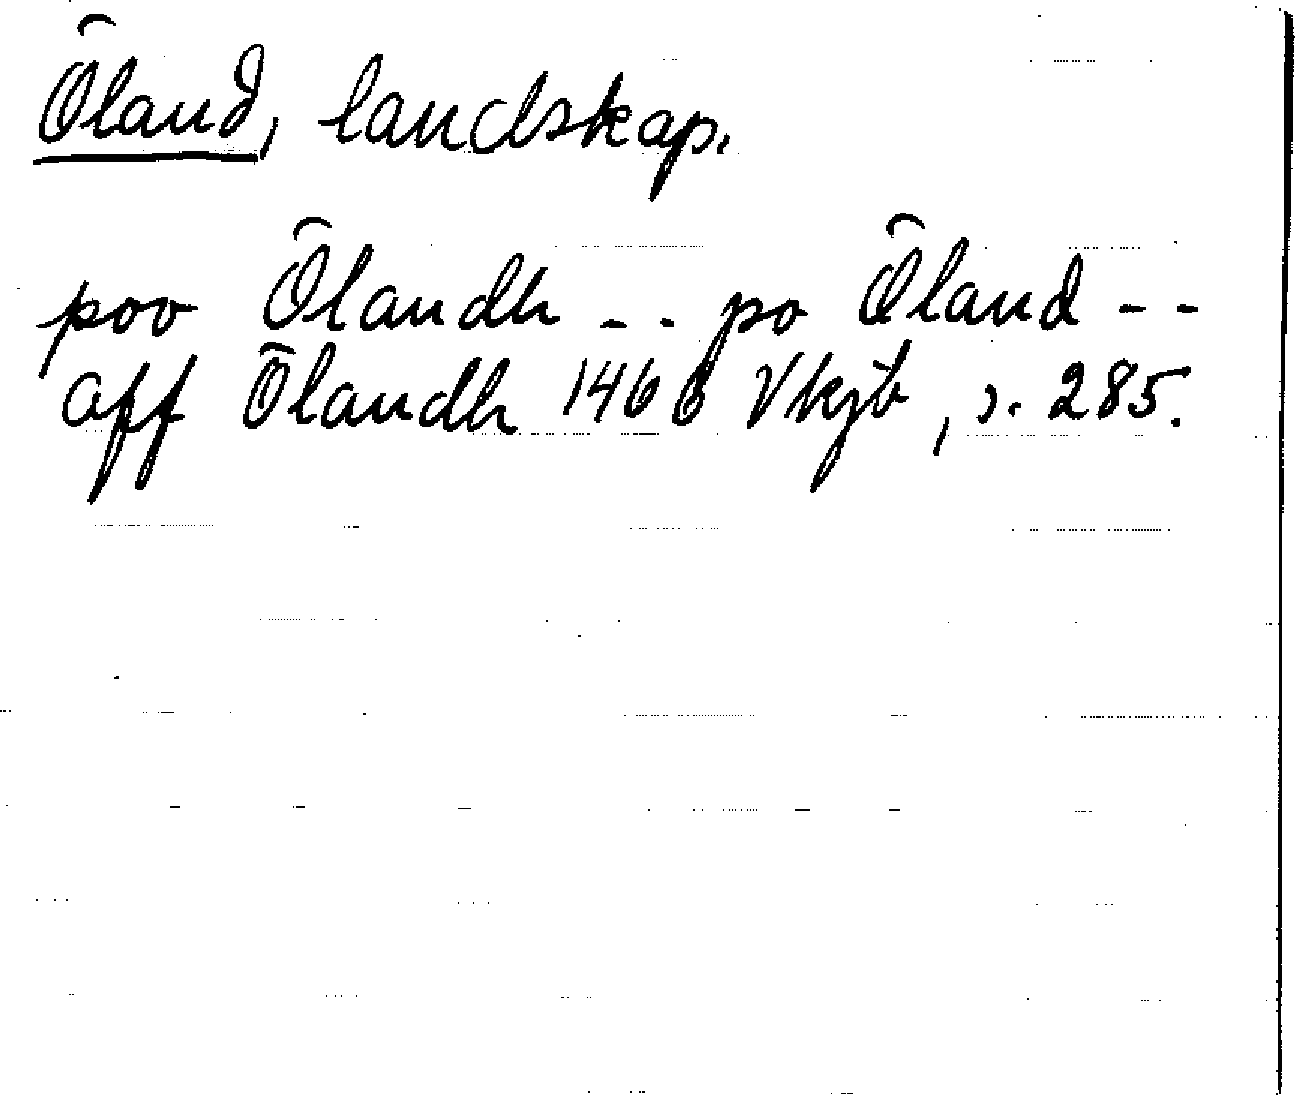 Öland, landskap.
poo Ölandh - - po Öland - -
aff Ölandh 1466 Vkjb, s. 285.